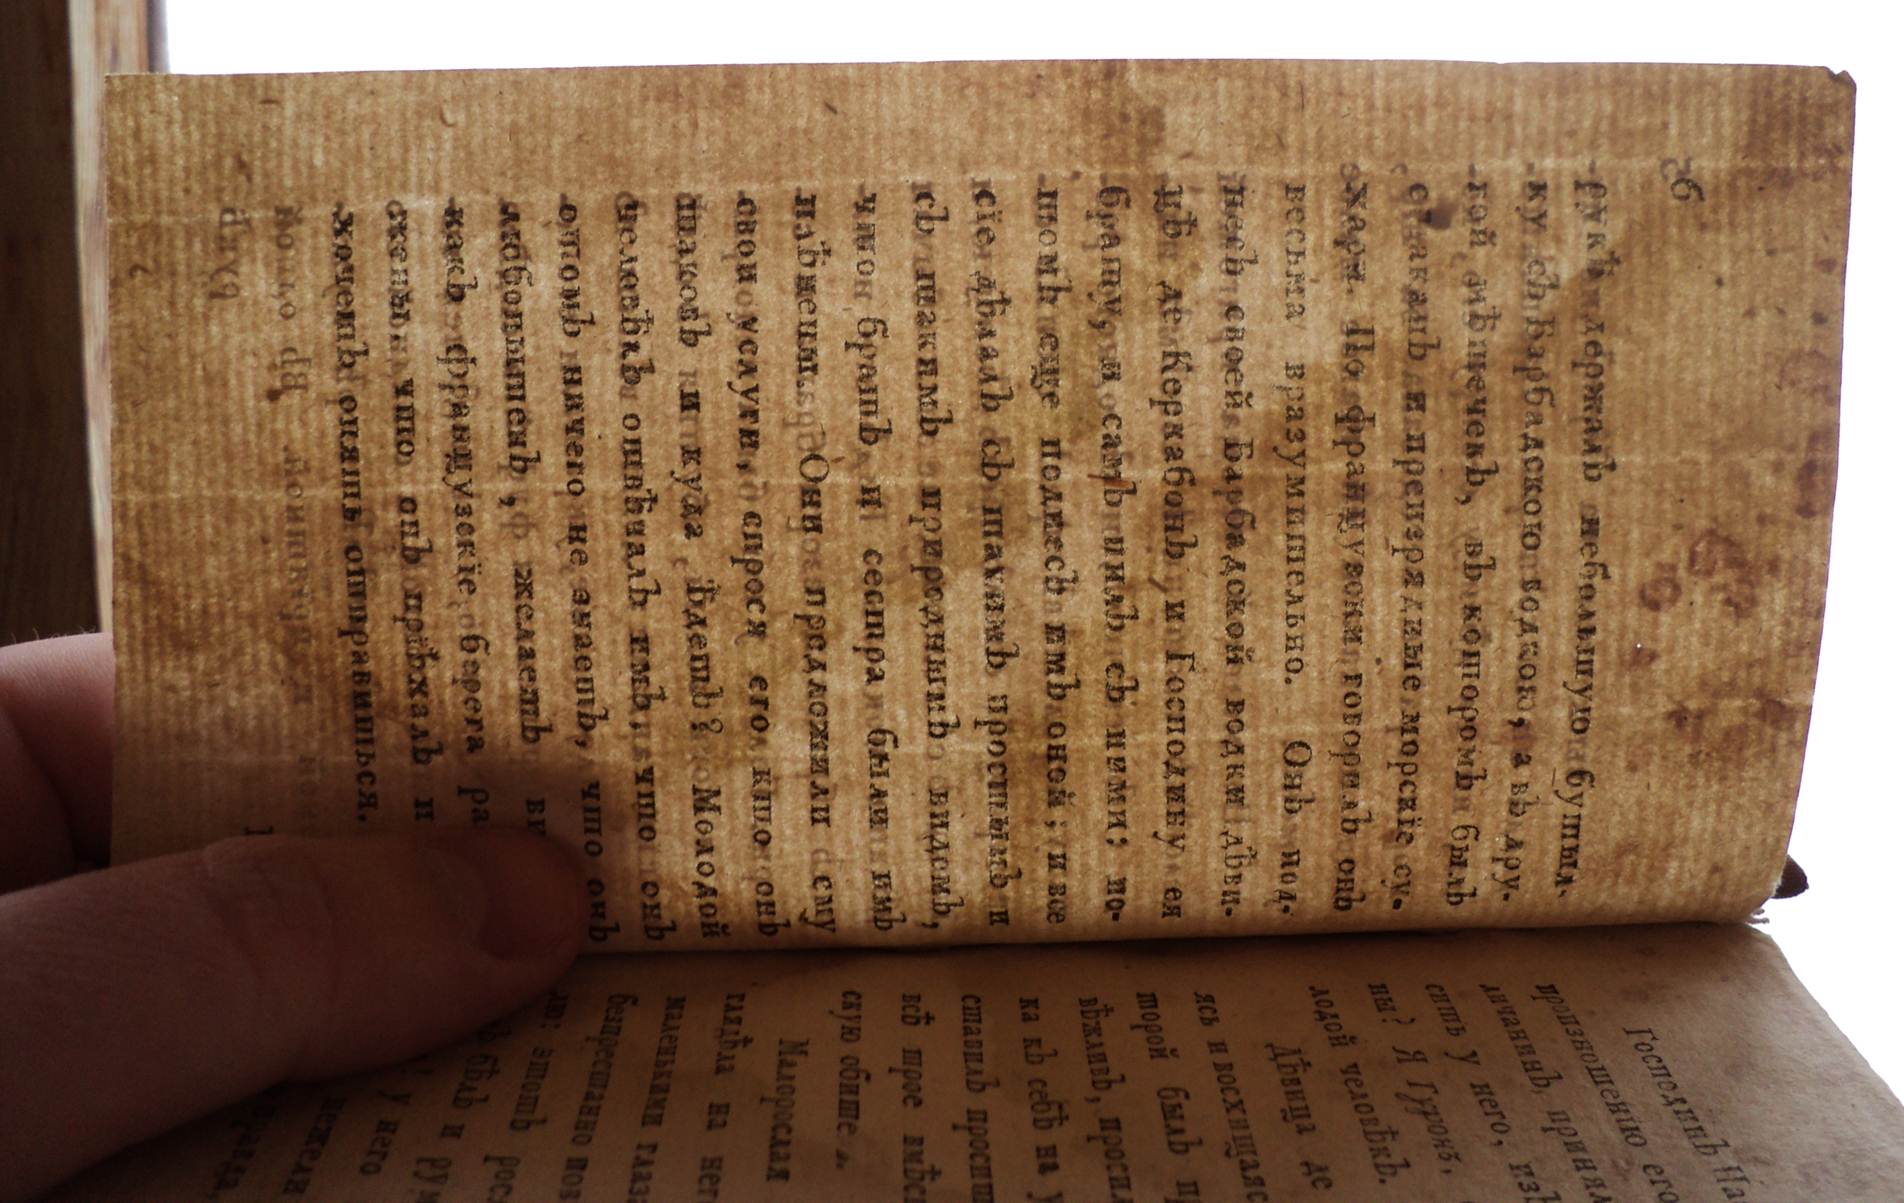 6
рукѣ держалъ небольшую бутыл-
ку съ Барбадскою водкою, а въ дру-
гой мѣшечекъ, въ которомъ былъ
стаканъ и преизрядные морскіе су-
хари. По французски говорилъ онъ
весьма вразумительно. Онъ под-
несъ своей Барбадской водки дѣви-
цѣ де Керкабонъ и Господину ея
брату, и самъ пилъ съ ними; по-
томъ еще поднесъ имъ оной; и все
сіе дѣлалъ съ такимъ простымъ и
съ такимъ природнымъ видомъ,
что братъ и сестра были имъ
плѣнены. Они предложили ему
свои услуги, спрося его кто онъ
таковъ и куда ѣдетъ? Молодой
человѣкъ отвѣчалъ имъ, что онъ
о томъ ничего не знаетъ, что онъ
любопытенъ, желаетъ
какъ французскіе берега
что онъ пріѣхалъ и
хочетъ опять отправиться.
Господинъ
произношенію его
личанинъ, принял
сить у него, изъ
ны? Я Гуронъ,
лодой человѣкъ.
Дѣвица де
ясь и восхищаяс
торой былъ
вѣжливъ, просила
ка къ себѣ на
ставилъ просить
всѣ трое вмѣс
скую обите
Малорослая
глядѣла на него
маленькими глаза
безпрестанно пов
этотъ
бѣлъ и
у него
нежели